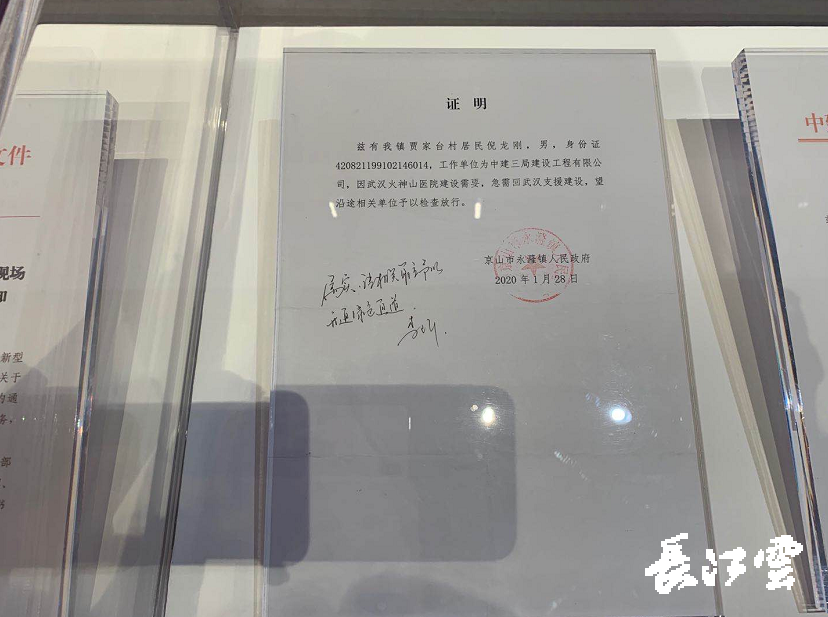 证明
兹有我镇贾家台村居民倪龙刚，男，身份证
420821199102146014，工作单位为中建三局建设工程有限公
司，因武汉火神山医院建设需要，急需回武汉支援建设，望
沿途相关单位予以检查放行。
京山市永漋镇人民政府
2020年1月28日
属实，请相关部门予以
开通绿色通道
文件
现场
知
新型
关于
的通
务，
部
书
中
长江云